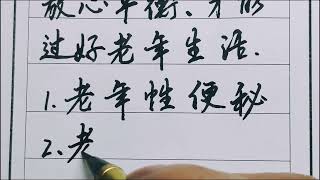 放心平衡、才能
过好老年生活.
1.老年性便秘
2.老